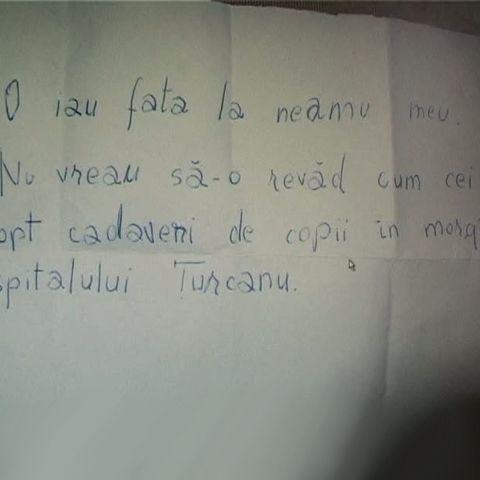 O iau fata la neamu meu.
Nu vreau să-o revăd cum cei
opt cadaveri de copii in morg
spitalului Turcanu.